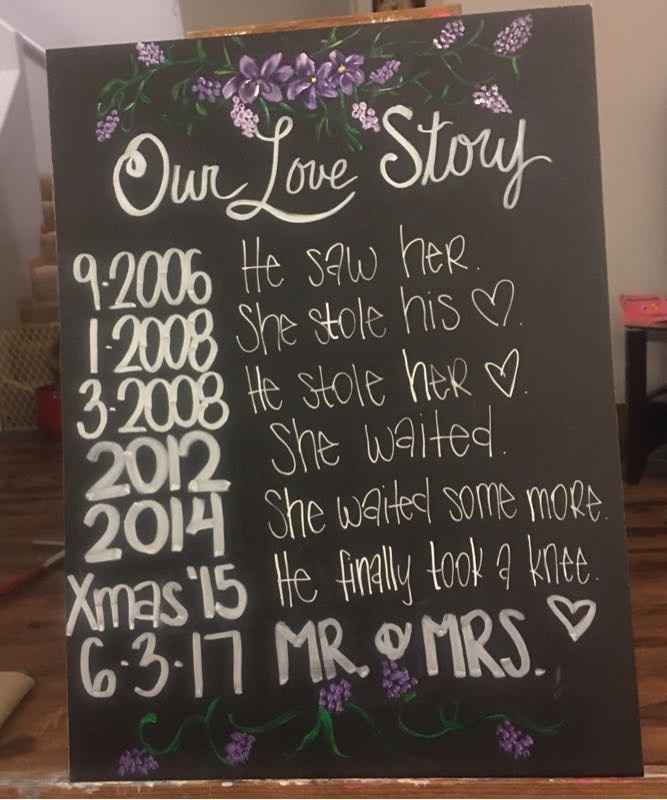 Our Love Story
9.2006 He saw her.
1.2008 She stole his ♡.
3.2008 He stole her ♡.
2012 She waited.
2014 She waited some more.
Xmas '15 He finally took a knee.
6.3.17 MR. & MRS. ♡